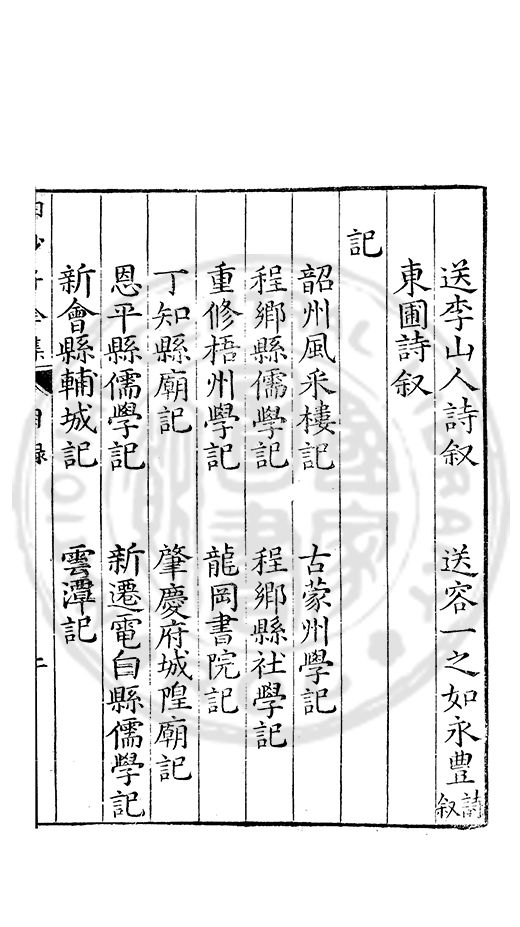 送李山人詩叙　送容一之如永豊詩叙
東圃詩叙
記
韶州風采樓記　古蒙州學記
程鄉縣儒學記　程鄉縣社學記
重修梧州學記　龍岡書院記
丁知縣廟記　肇慶府城隍廟記
恩平縣儒學記　新遷電白縣儒學記
新會縣輔城記　雲潭記
白沙子全集　目録